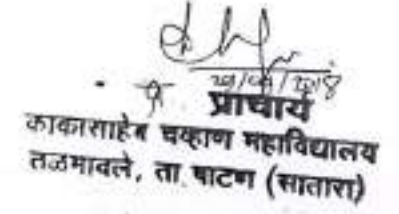 प्राचार्य
काकासाहेब चव्हाण महाविद्यालय
तळमावले, ता. पाटण (सातारा)